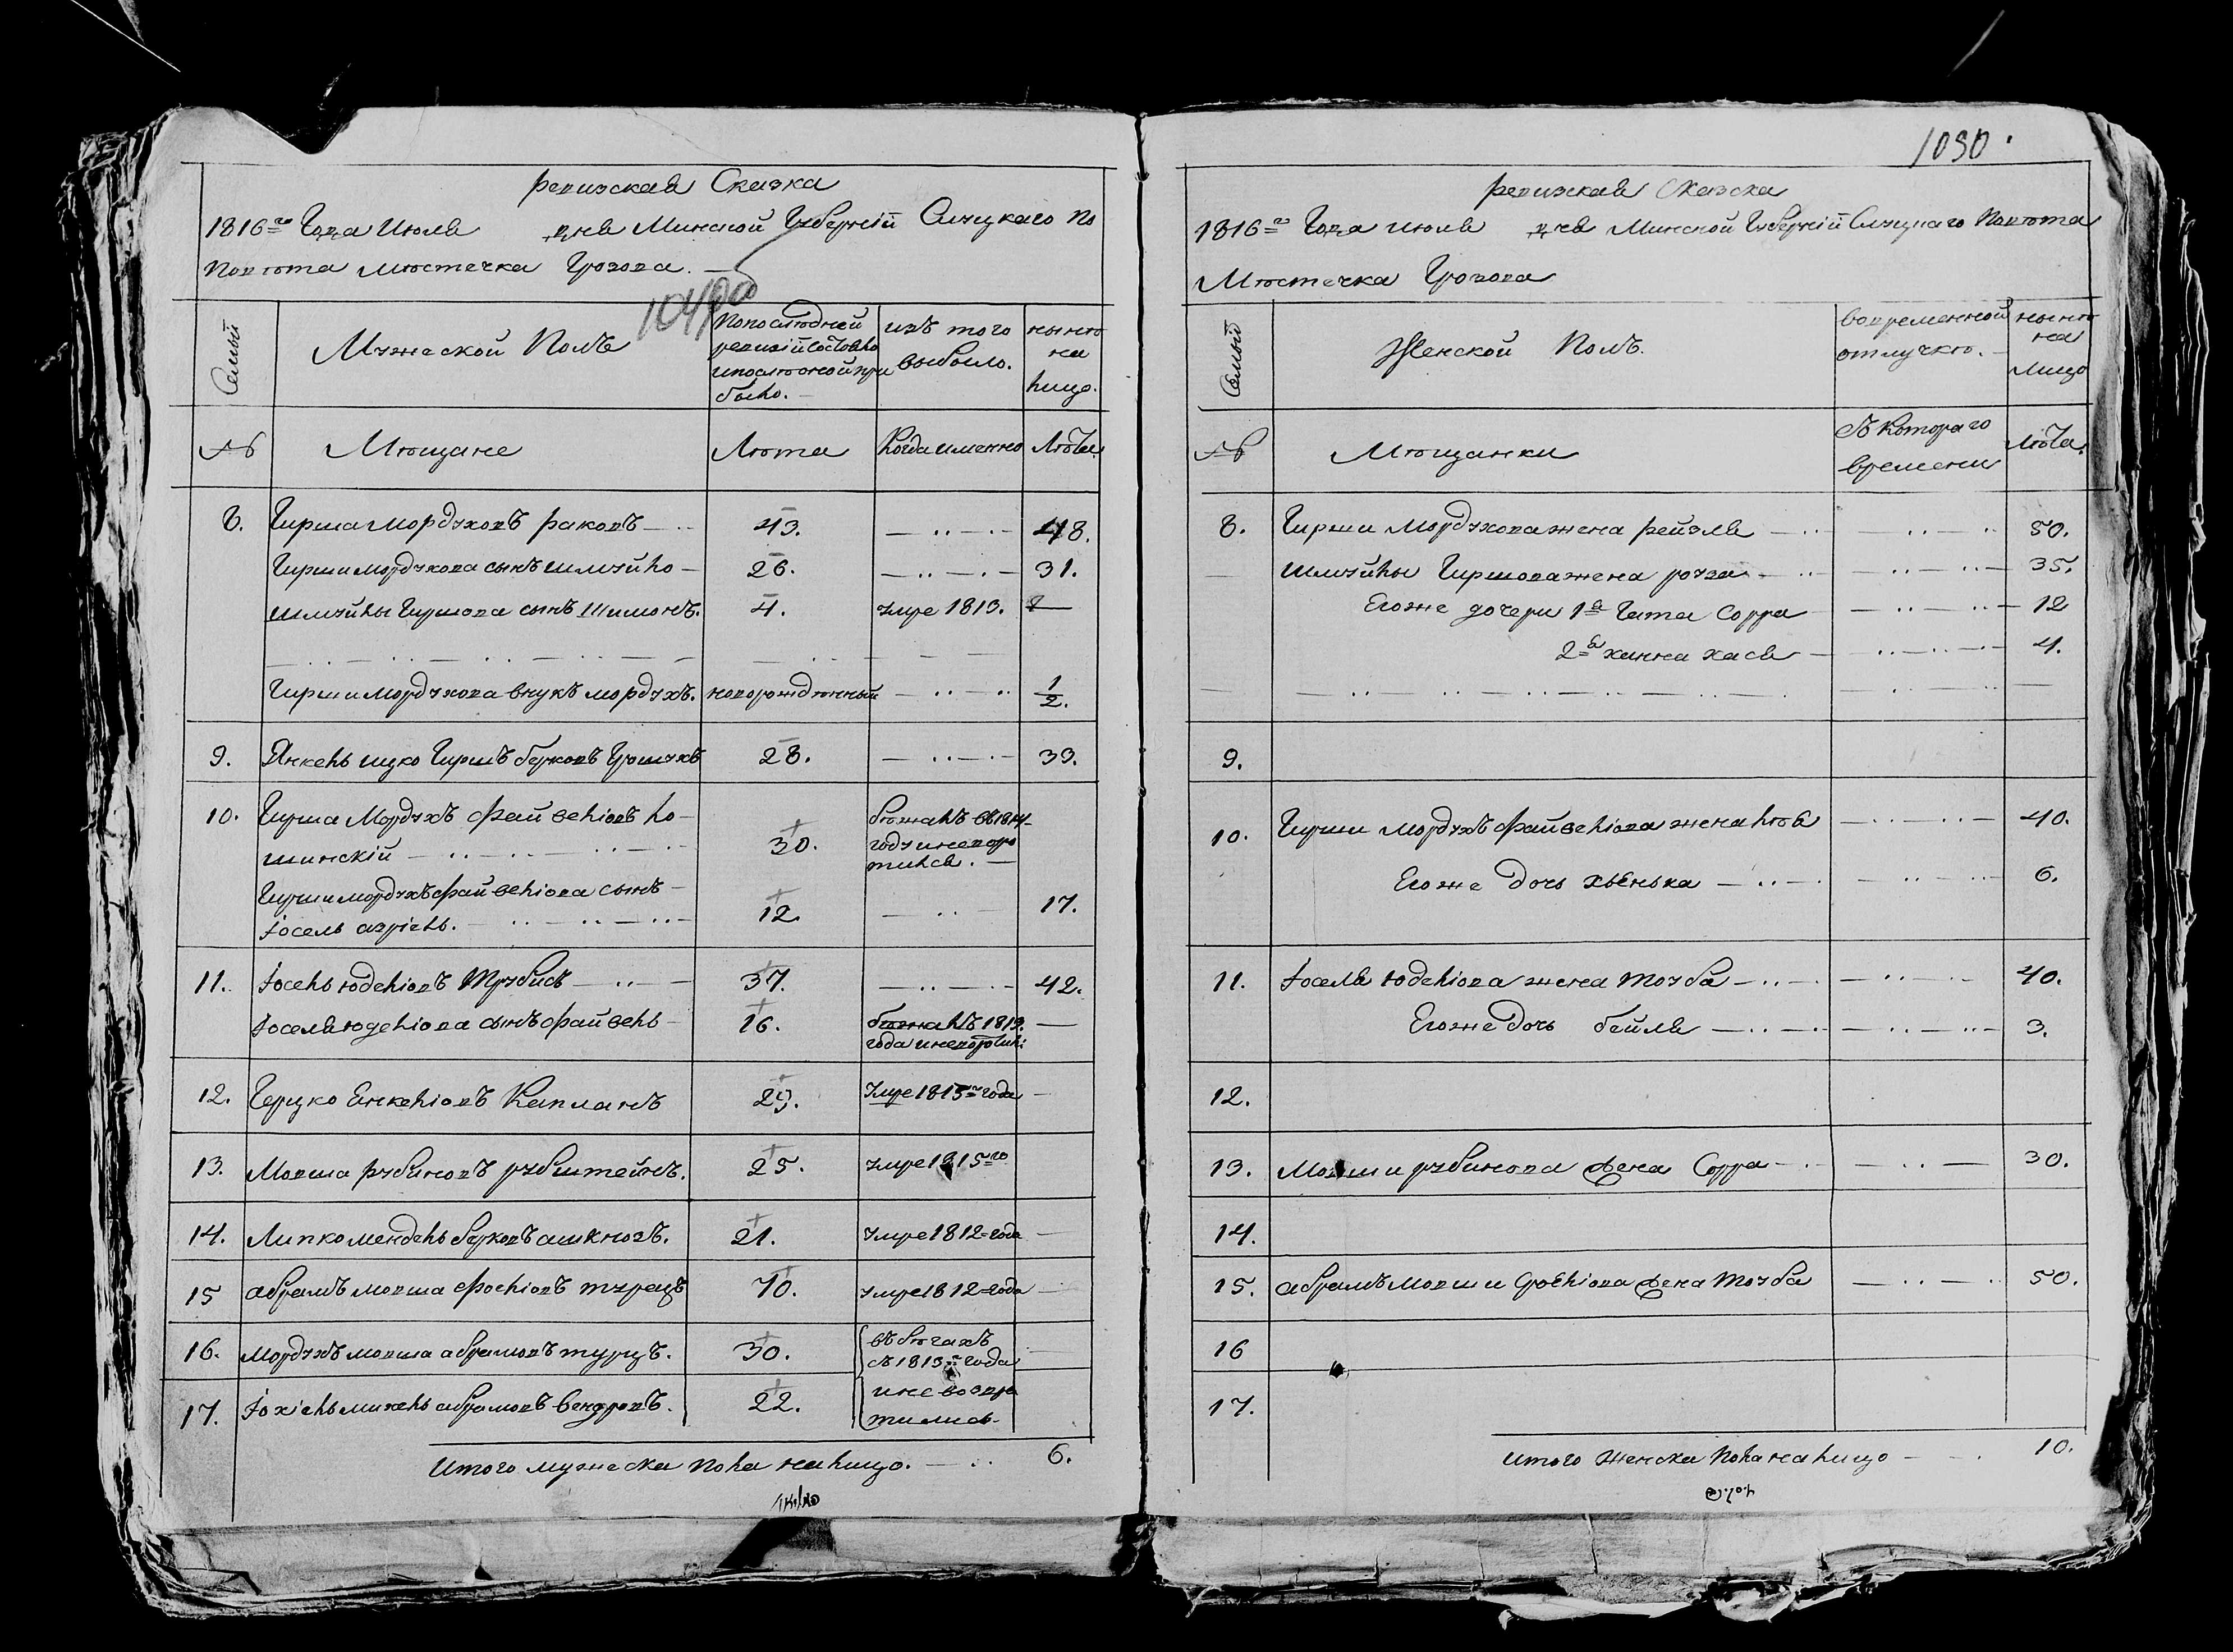 ревизская Сказка
1816го Года Июля дня Минской Губерніи Слуцкаго По
Повѣта мѣстечка Грозова.
Семьи
Мужеской Полъ
По последней
ревизіи состояло
и после оной при
было.
изъ того
выбыло.
нынѣ
на
лицо.
№
Мѣщане
Лѣта
Когда именно
Лѣта.
8. Гирша Мордуховъ раковъ 43. 48.
Гирши мордухова сынъ шлиуйло 26. 31.
Шлиуйлы Гиршова сынъ Шимонъ. 4. умре 1813.
Гирши мордухова внукъ мордухъ. новорожденный 1/2.
9. Янкель ицко Гиршъ берковъ Грошукъ 28. 33.
10. Гирша Мордухъ Файвеліовъ ло
шинскій 30. бѣжалъ въ 1814
году и невозвра
тился.
Гирши мордухъ Файвеліова сынъ
Іосель азріель. 12 17.
11. Іосель юделіовъ Трубисъ 37. 42.
Іоселя юделіова сынъ Файвель 16. бѣжалъ 1813.
года и не
12. Герцко Енкеліовъ Капланъ 29. Умре 1815го года
13. Мовша рубиновъ рубштейнъ. 25. умре 1815го
14. Липко мендель берковъ ашкновъ. 21. Умре 1812 года
15 абрамъ мовша Фроеліовъ турецъ 70. умре 1812 года
16. мордухъ мовша абрамовъ турцъ. 30. въ бѣгахъ
съ 1813го года
17. Іохіель михель абрамовъ вендровъ. 22. и не возвра
тились
Итого мужеска пола налицо. 6.
1030.
ревизская Сказска
1816го Года июля дня Минской Губерніи Слуцкаго Повѣта
Мѣстечка Грозова
Семьи
Женской Полъ.
во временной
отлучкѣ.
нынѣ
на
лицо
№
Мѣщанки
Съ Котораго
времени
Лѣта.
8. Гирши Мордухова жена рейзля 50.
Шлиуйлы Гиршова жена роуза 35.
Егоже дочери 1я Гита Сорра 12
2я ханна хася 4.
9.
10. Гирши мордухъ Файвеліова жена лѣя 40.
Егоже дочь хьенька 6.
11. Іоселя юделіова жена Тоуба 40.
Егоже дочь бейля 3.
12.
13. Мовши рубинова жена Сорра 30.
14.
15. абрамъ мовши Фроеліова жена Тоуба 50.
16
17.
итого женска пола налицо 10.